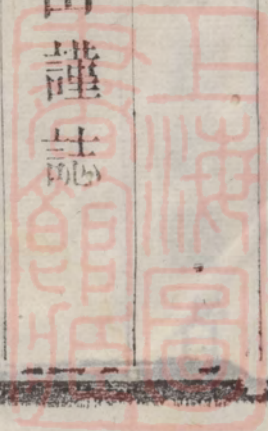 謹誌
上海圖書館藏